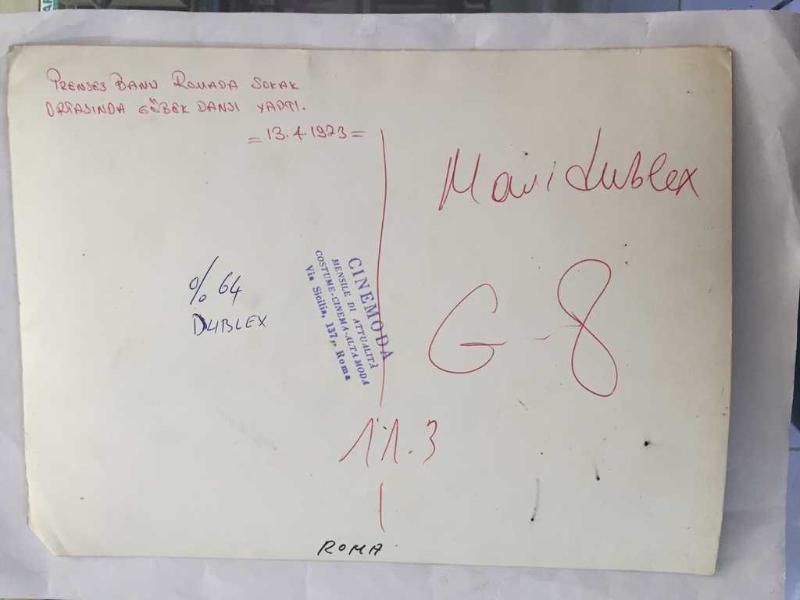 PRENSES BANU ROMADA SOKAK
ORTASINDA GÖBEK DANSI YAPTI.
= 13.4.1973 =
Mavi dublex
% 64
DUBLEX
CINEMODA
MENSILE DI ATTUALITÀ
COSTUME-CINEMA-ALTA MODA
Via Sicilia, 137, Roma
G-8
11.3
ROMA